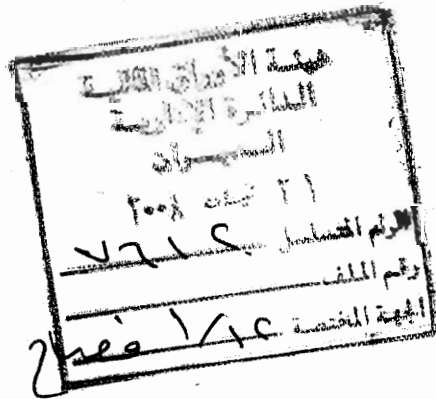 هيئة الأوراق المالية
الدائرة الإدارية
الديوان
٢١ نيسان ٢٠٠٨
الرقم المتسلسل ٧٦١٢
رقم الملف
الجهة المختصة